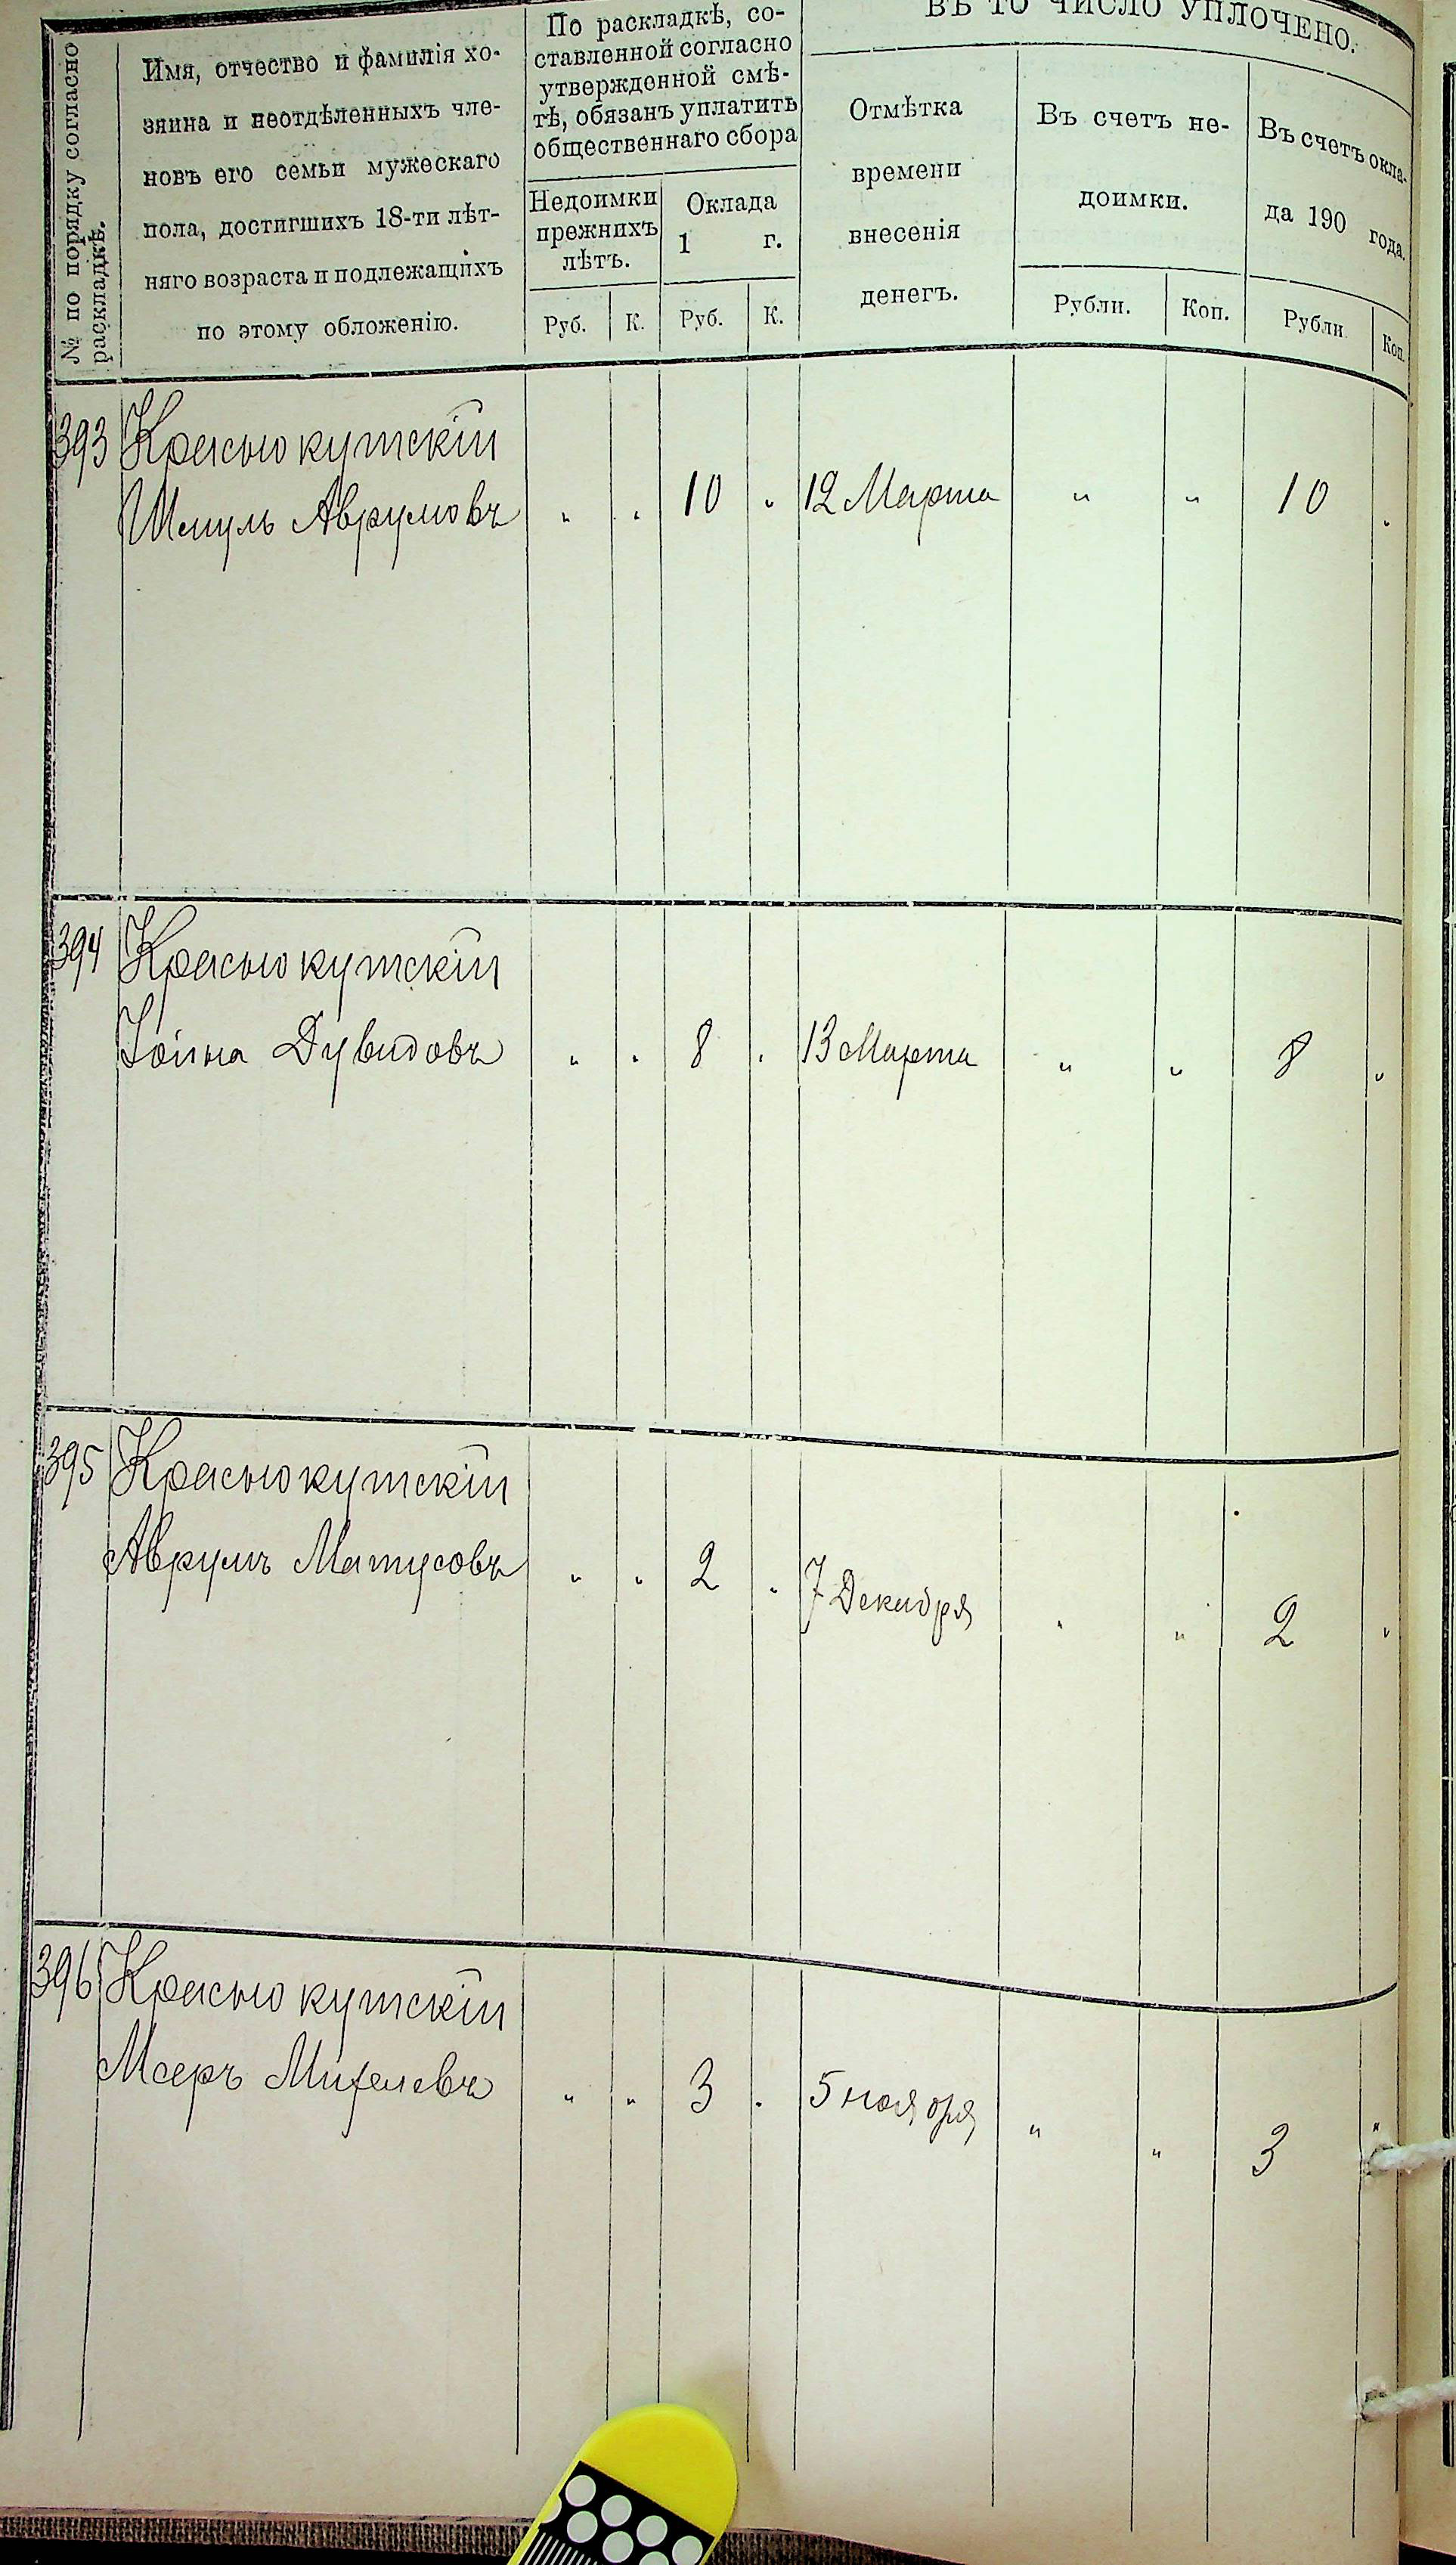 № по порядку согласно
раскладкѣ.
Имя, отчество и фамилія хо-
зяина и неотдѣленныхъ чле-
новъ его семьи мужескаго
пола, достигшихъ 18-ти лѣт-
няго возраста и подлежащихъ
по этому обложенію.
По раскладкѣ, со-
ставленной согласно
утвержденной смѣ-
тѣ, обязанъ уплатить
общественнаго сбора
Недоимки
прежнихъ
лѣтъ.
Оклада
1 г.
Руб. К. Руб. К.
ВЪ ТО ЧИСЛО УПЛОЧЕНО.
Отмѣтка
времени
внесенія
денегъ.
Въ счетъ не-
доимки.
Рубли. Коп.
Въ счетъ окла-
да 190 года.
Рубли. Коп.
393 Краснокутскій
Шмуль Аврумовъ " " 10 " 12 Марта " " 10 "
394 Краснокутскій
Іойна Дувидовъ " " 8 " 13 Марта " " 8 "
395 Краснокутскій
Аврумъ Матусовъ " " 2 " 7 Декабря " " 2 "
396 Краснокутскій
Мееръ Михелевъ " " 3 " 5 ноября " " 3 "